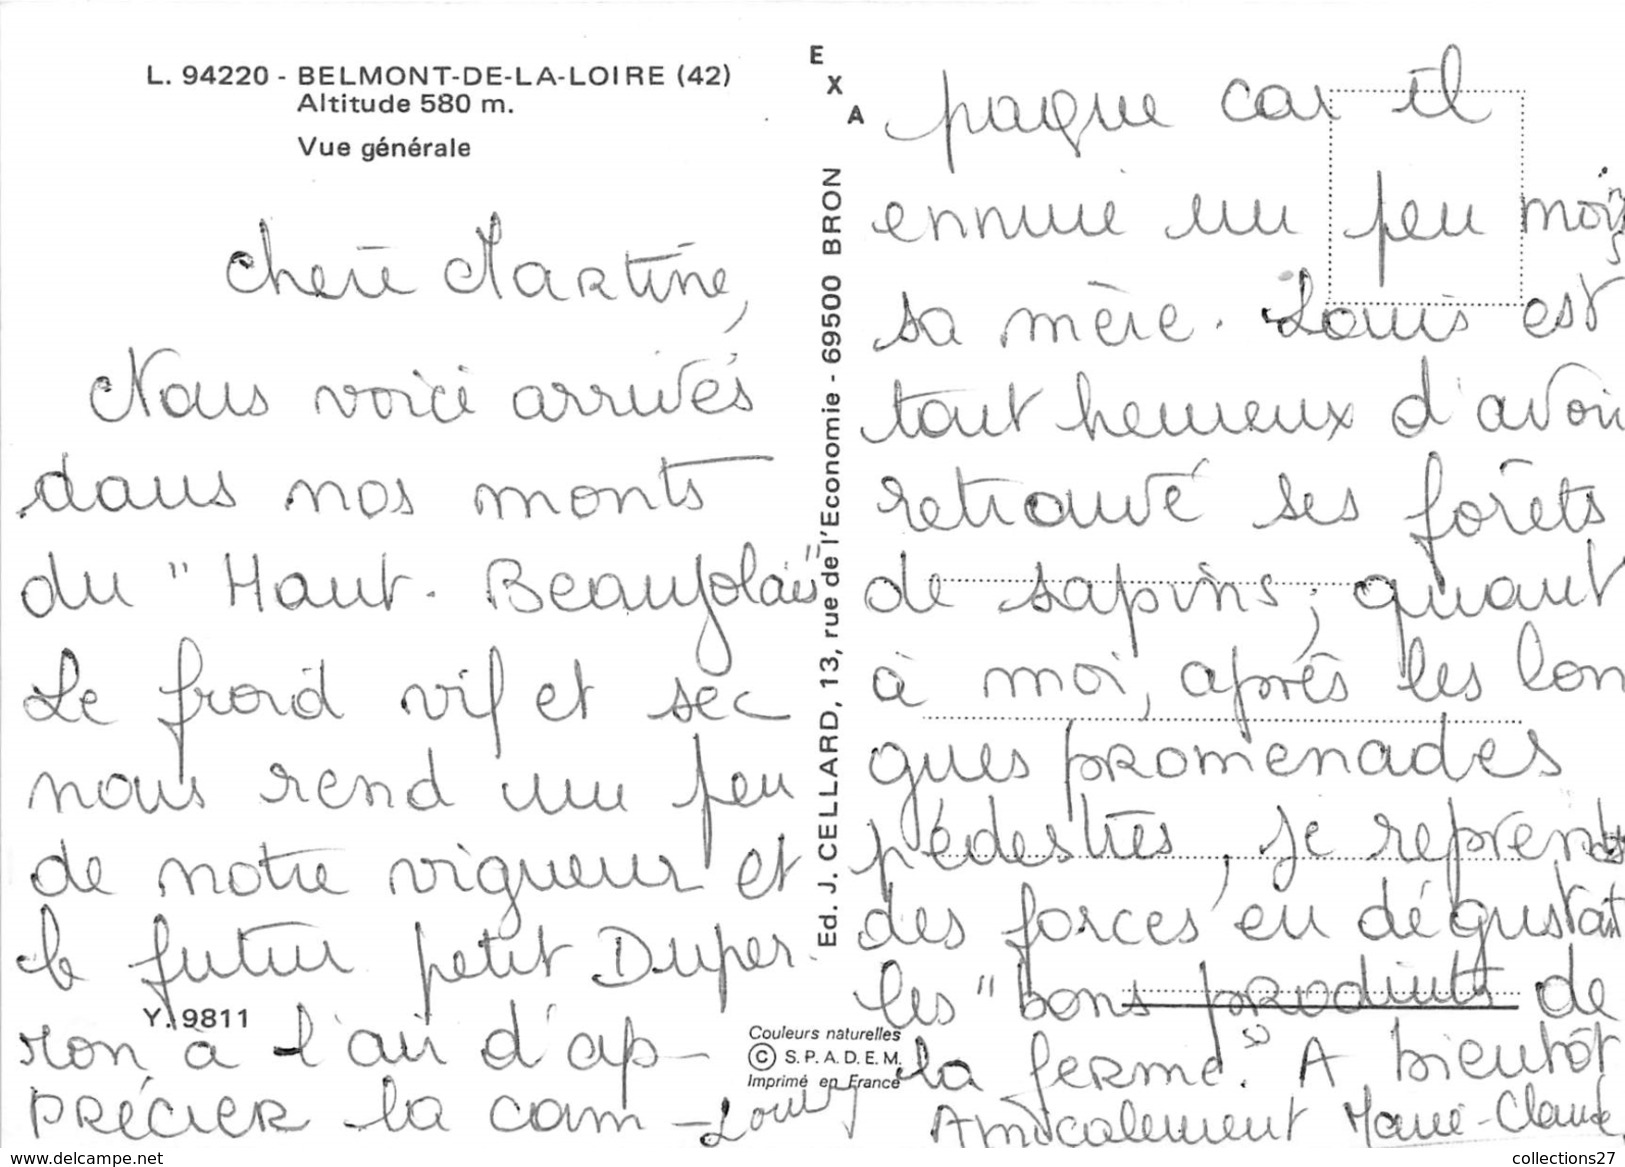 L. 94220 - BELMONT-DE-LA-LOIRE (42)
Altitude 580 m.
Vue générale
Chère Martine,
Nous voici arrivés
dans nos monts
du "Haut-Beaujolais"
Le froid vif et sec
nous rend un peu
de notre vigueur et
le futur petit Duper-
ron, à l'air d'ap-
précier la cam-
Y. 9811
EXA
Ed. J. CELLARD, 13, rue de l'Economie - 69500 BRON
Couleurs naturelles
© S.P.A.D.E.M.
Imprimé en France
pagne car il
ennuie un peu moins
sa mère. Louis est
tout heureux d'avoir
retrouvé ses forêts
de sapins; quant
à moi, après les lon
gues promenades
pédestres, je reprends
des forces en dégustant
les "bons produits de
la ferme." A bientôt
Amicalement Marie-Claude,
Louis
collections27
www.delcampe.net